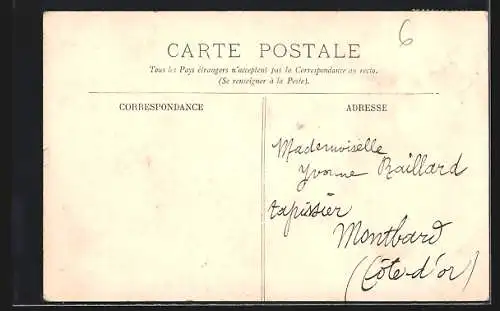 6
CARTE POSTALE
Tous les Pays étrangers n'acceptent pas la Correspondance au recto.
(Se renseigner à la Poste).
CORRESPONDANCE
ADRESSE
Mademoiselle
Yvonne Raillard
tapissier
Montbard
(Côte-d'or)